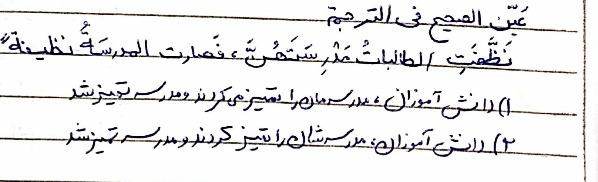 عَیّن الصحیح فی الترجمة
نَظَّفَتِ الطالباتُ مَدْرِسَتَهُنَّ، فَصارت المدرسَةُ نظیفةً
۱) دانش آموزان، مدرسه‌مان را تمیز می‌کردند و مدرسه تمیز شد
۲) دانش آموزان، مدرسه‌شان را تمیز کردند و مدرسه تمیز شد